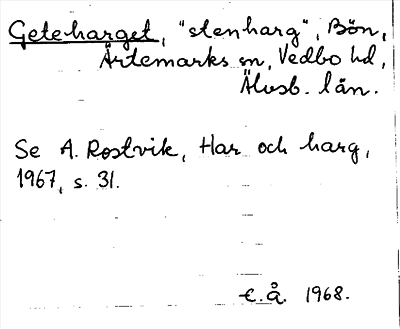 Geteharget, "stenharg", Bön,
Ärtemarks sn, Vedbo hd,
Älvsb. län.
Se A. Rostvik, Har och harg,
1967, s. 31.
E.Å. 1968.